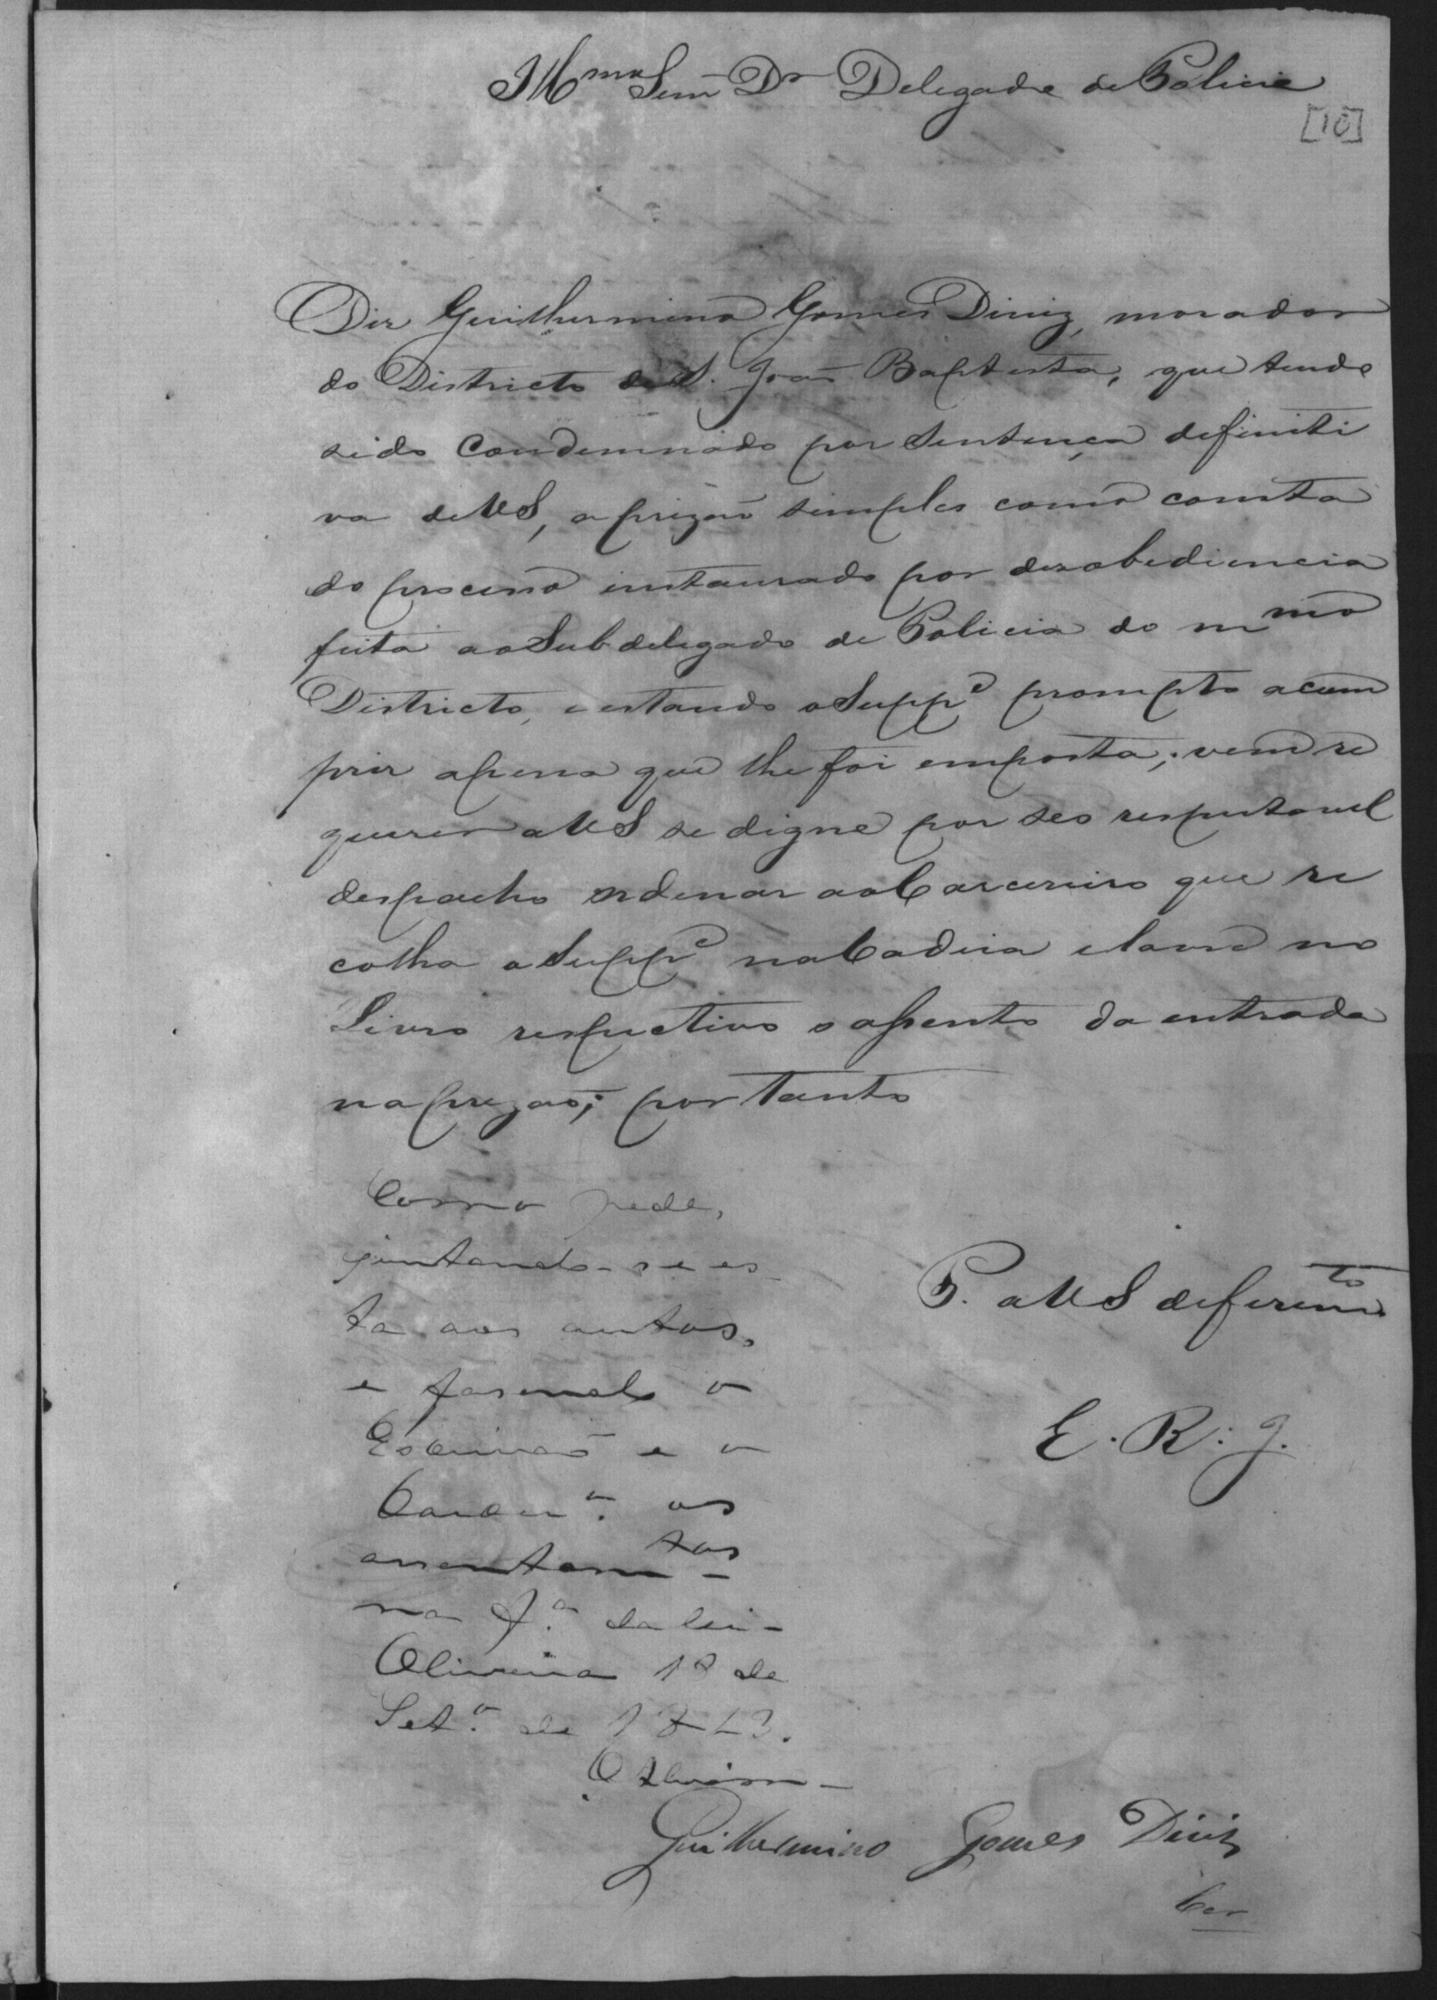 Illmo Senr Dr Delegado de Policia
[10]
Diz Guilhermino Gomes Diniz, morador
do Districto de S. João Baptista, que tendo
sido Condemnado por Sentença definiti
va de VS, a prizão simples como consta
do processo instaurado por dezobediencia
feita ao Subdelegado de Policia do mmo
Districto, e estando o Suppe prompto a cum
prir a pena que lhe foi emposta; vem re
querer a VS se digne por seo respeitavel
despacho ordenar ao Carcereiro que re
colha o Suppe na Cadeia e lavre no
Livro respectivo o assento da entrada
na prizão; por tanto
Como pede,
juntando-se es
ta aos autos,
e fasendo o
Escrivão e o
Carcero. os
assentamtos
na fa. da lei-
Oliveira 18 de
Seto. de
P. a VS deferimto
E. R. J.
Guilhermino Gomes Diniz